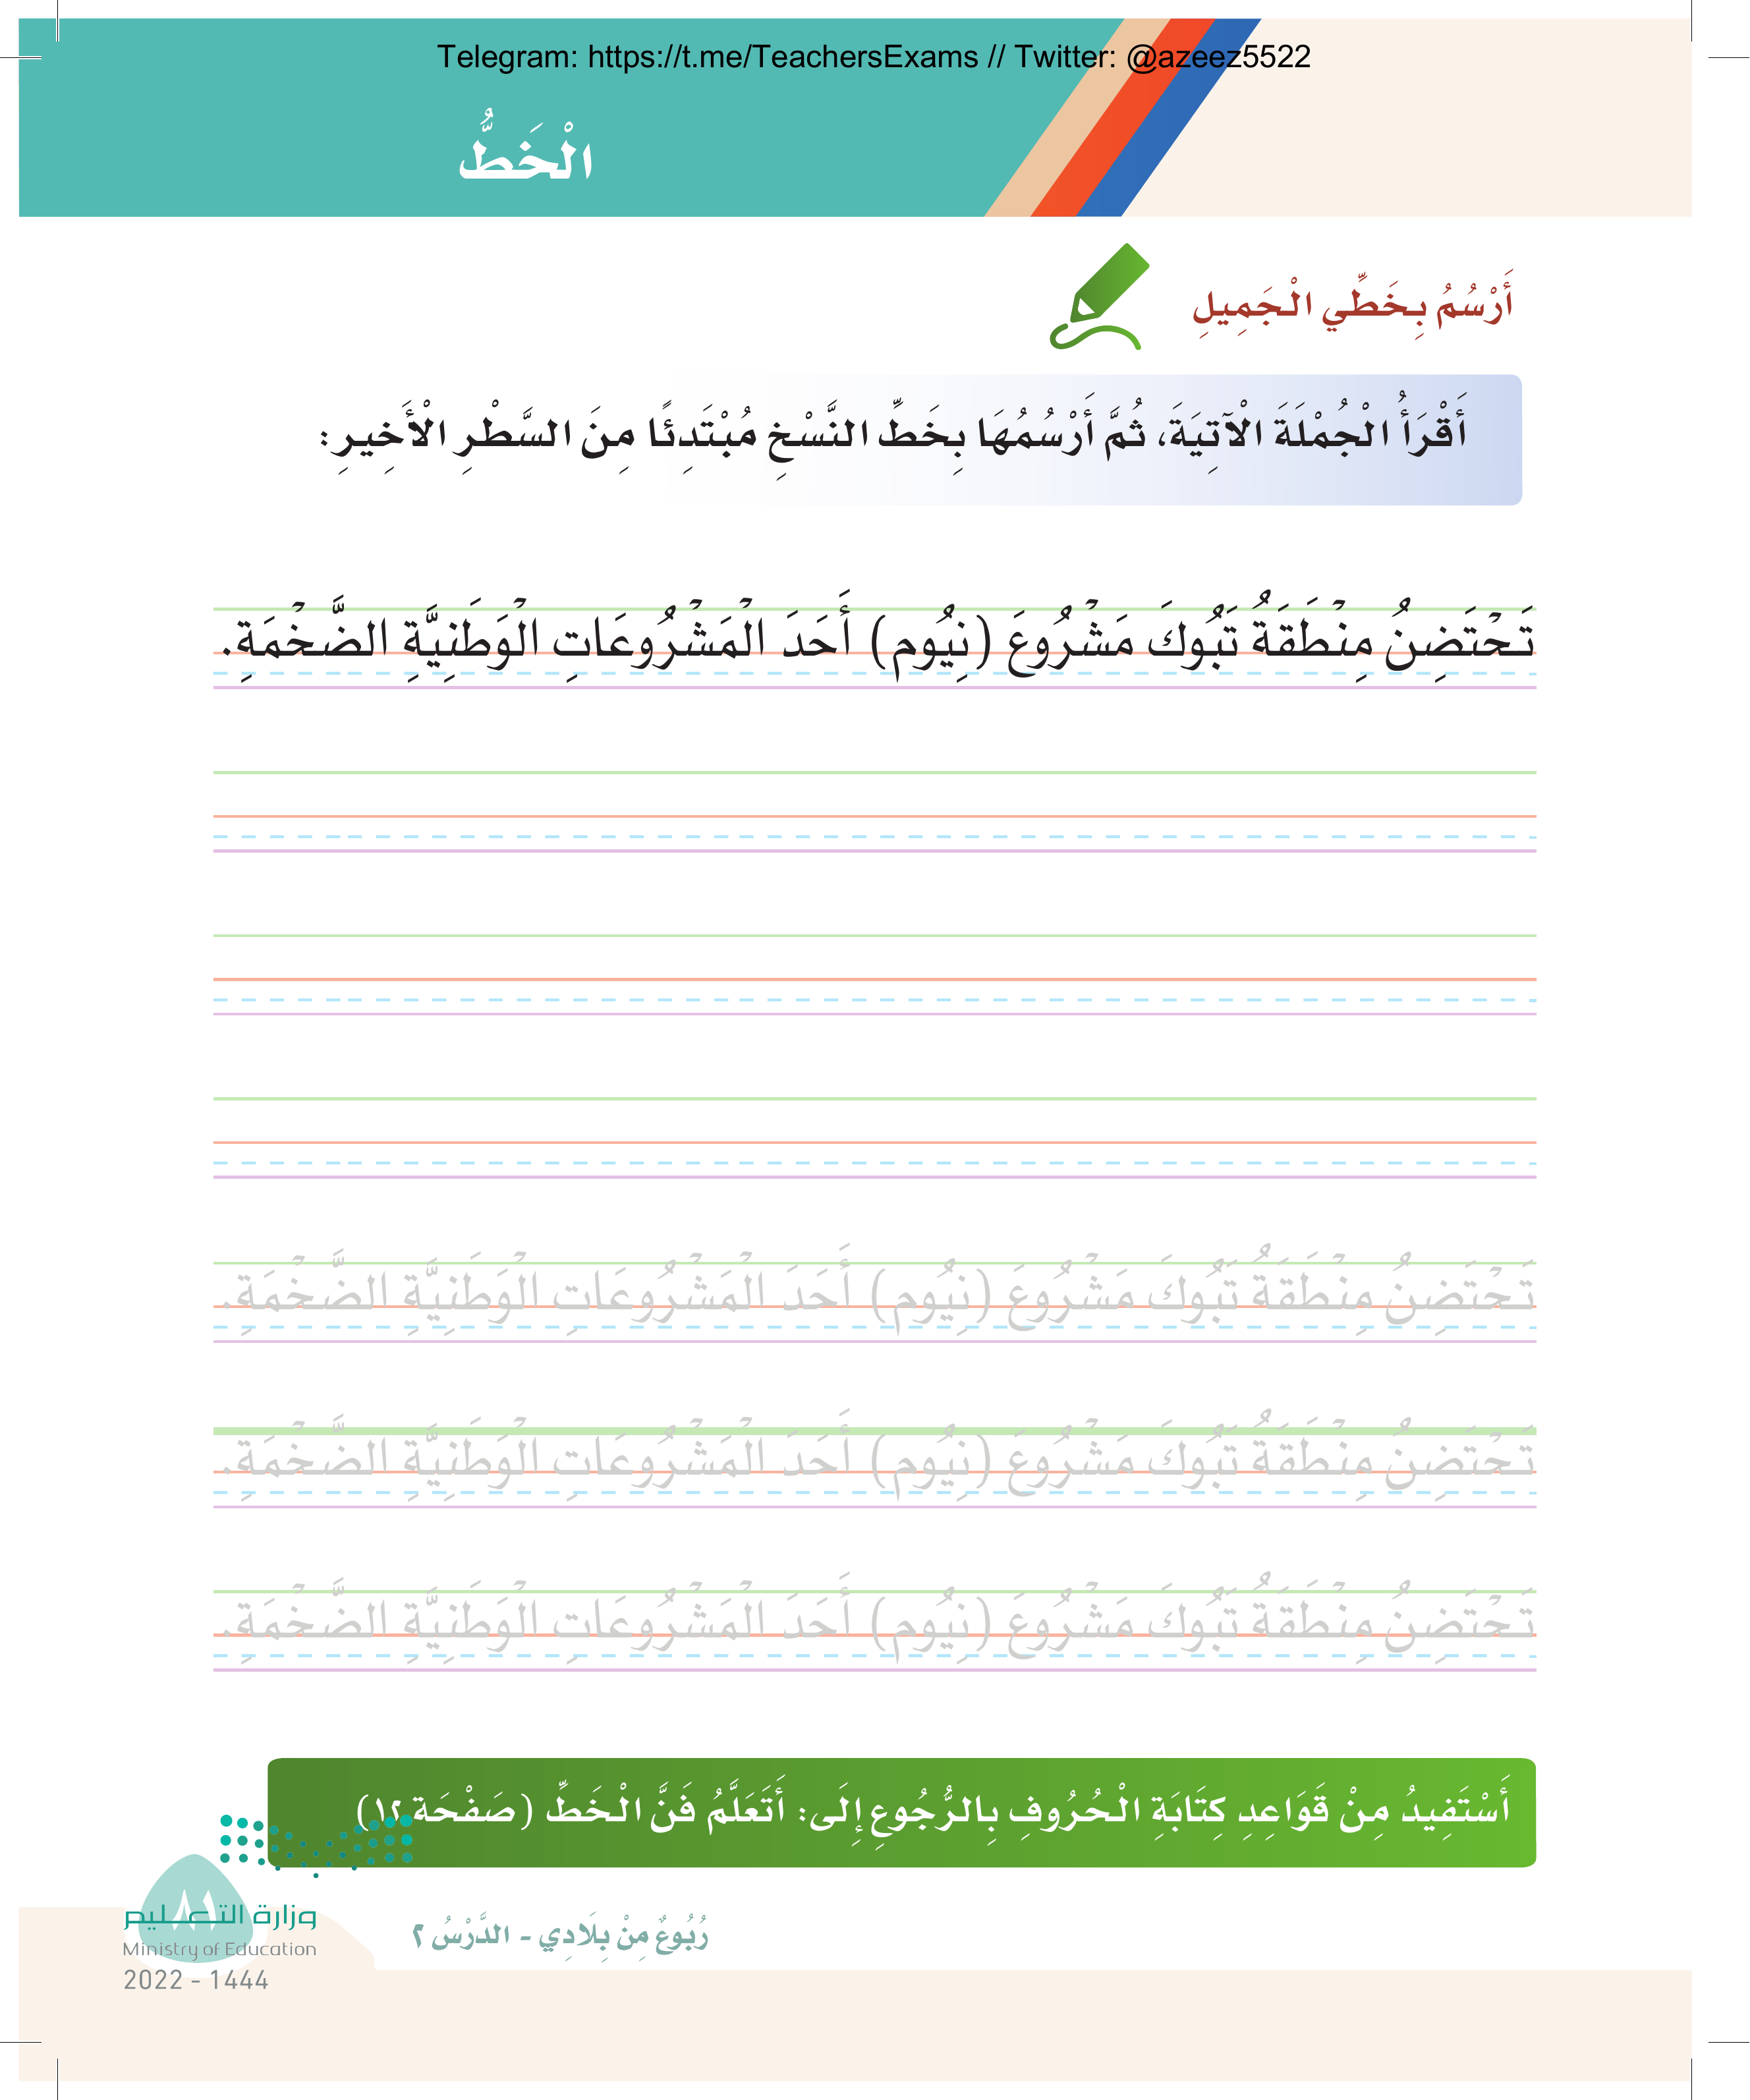 Telegram: https://t.me/TeachersExams // Twitter: @azeez5522
الْخَطُّ
أَرْسُمُ بِخَطِّي الْجَمِيلِ
أَقْرَأُ الْجُمْلَةَ الْآتِيَةَ، ثُمَّ أَرْسُمُهَا بِخَطِّ النَّسْخِ مُبْتَدِئًا مِنَ السَّطْرِ الْأَخِيرِ:
تَحْتَضِنُ مِنْطَقَةُ تَبُوكَ مَشْرُوعَ (نِيُوم) أَحَدَ الْمَشْرُوعَاتِ الْوَطَنِيَّةِ الضَّخْمَةِ.
تَحْتَضِنُ مِنْطَقَةُ تَبُوكَ مَشْرُوعَ (نِيُوم) أَحَدَ الْمَشْرُوعَاتِ الْوَطَنِيَّةِ الضَّخْمَةِ.
تَحْتَضِنُ مِنْطَقَةُ تَبُوكَ مَشْرُوعَ (نِيُوم) أَحَدَ الْمَشْرُوعَاتِ الْوَطَنِيَّةِ الضَّخْمَةِ.
تَحْتَضِنُ مِنْطَقَةُ تَبُوكَ مَشْرُوعَ (نِيُوم) أَحَدَ الْمَشْرُوعَاتِ الْوَطَنِيَّةِ الضَّخْمَةِ.
أَسْتَفِيدُ مِنْ قَوَاعِدِ كِتَابَةِ الْحُرُوفِ بِالرُّجُوعِ إِلَى: أَتَعَلَّمُ فَنَّ الْخَطِّ (صَفْحَة ١٢)
رُبُوعٌ مِنْ بِلَادِي - الدَّرْسُ ٢
٨١
وزارة التعليم
Ministry of Education
2022 - 1444